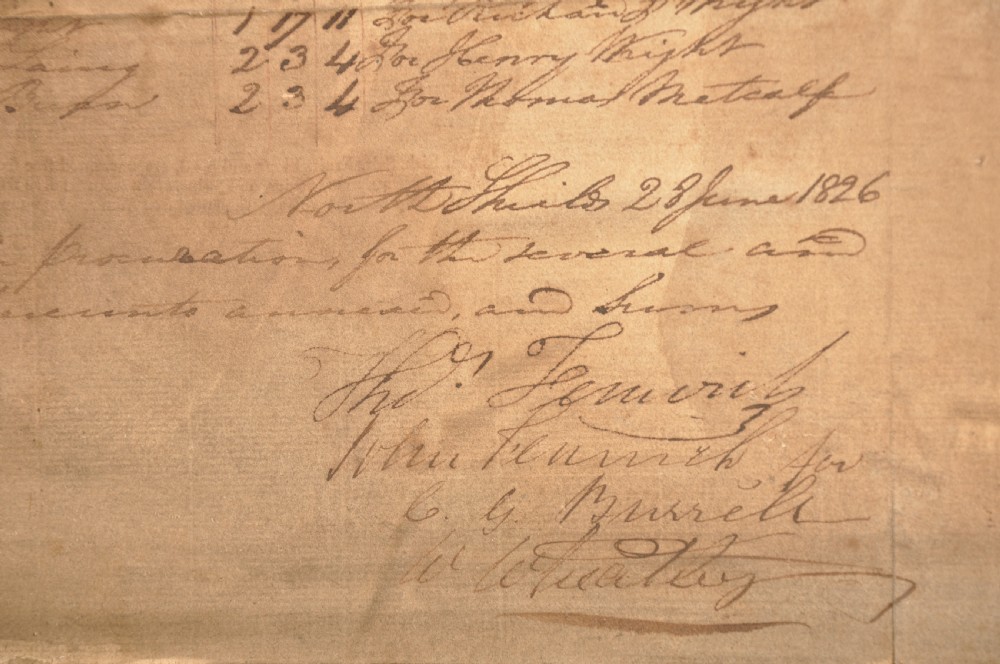 1 17 11 For Richard Wright
Laing 2 3 4 For Henry Wright
2 3 4 For Thomas Metcalf
North Shields 28 June 1826
procuration, for the several and
amounts annexed, and sums
Thos. Fenwick
John Fenwick for
C. G. Burrell
W Wheatley